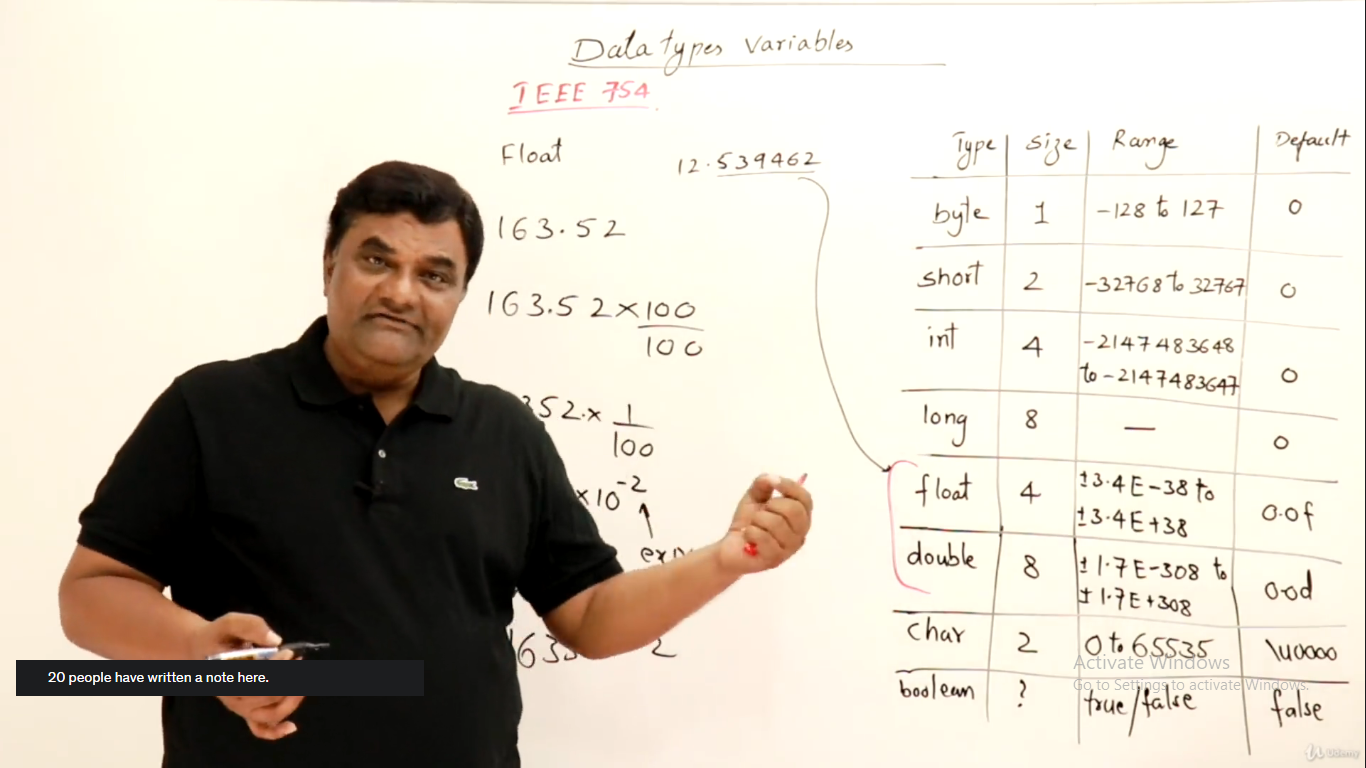 Data types Variables
IEEE 754
Float
12.539462
163.52
163.52 × 100
100
352 × 1
100
×10⁻²
2
Type Size Range Default
byte 1 -128 to 127 0
short 2 -32768 to 32767 0
int 4 -2147483648
to -2147483647 0
long 8 — 0
float 4 ±3.4E-38 to
±3.4E+38 0.0f
double 8 ±1.7E-308 to
±1.7E+308 0.0d
char 2 0 to 65535 \u0000
boolean ? true/false false
20 people have written a note here.
Activate Windows
Go to Settings to activate Windows.
Udemy